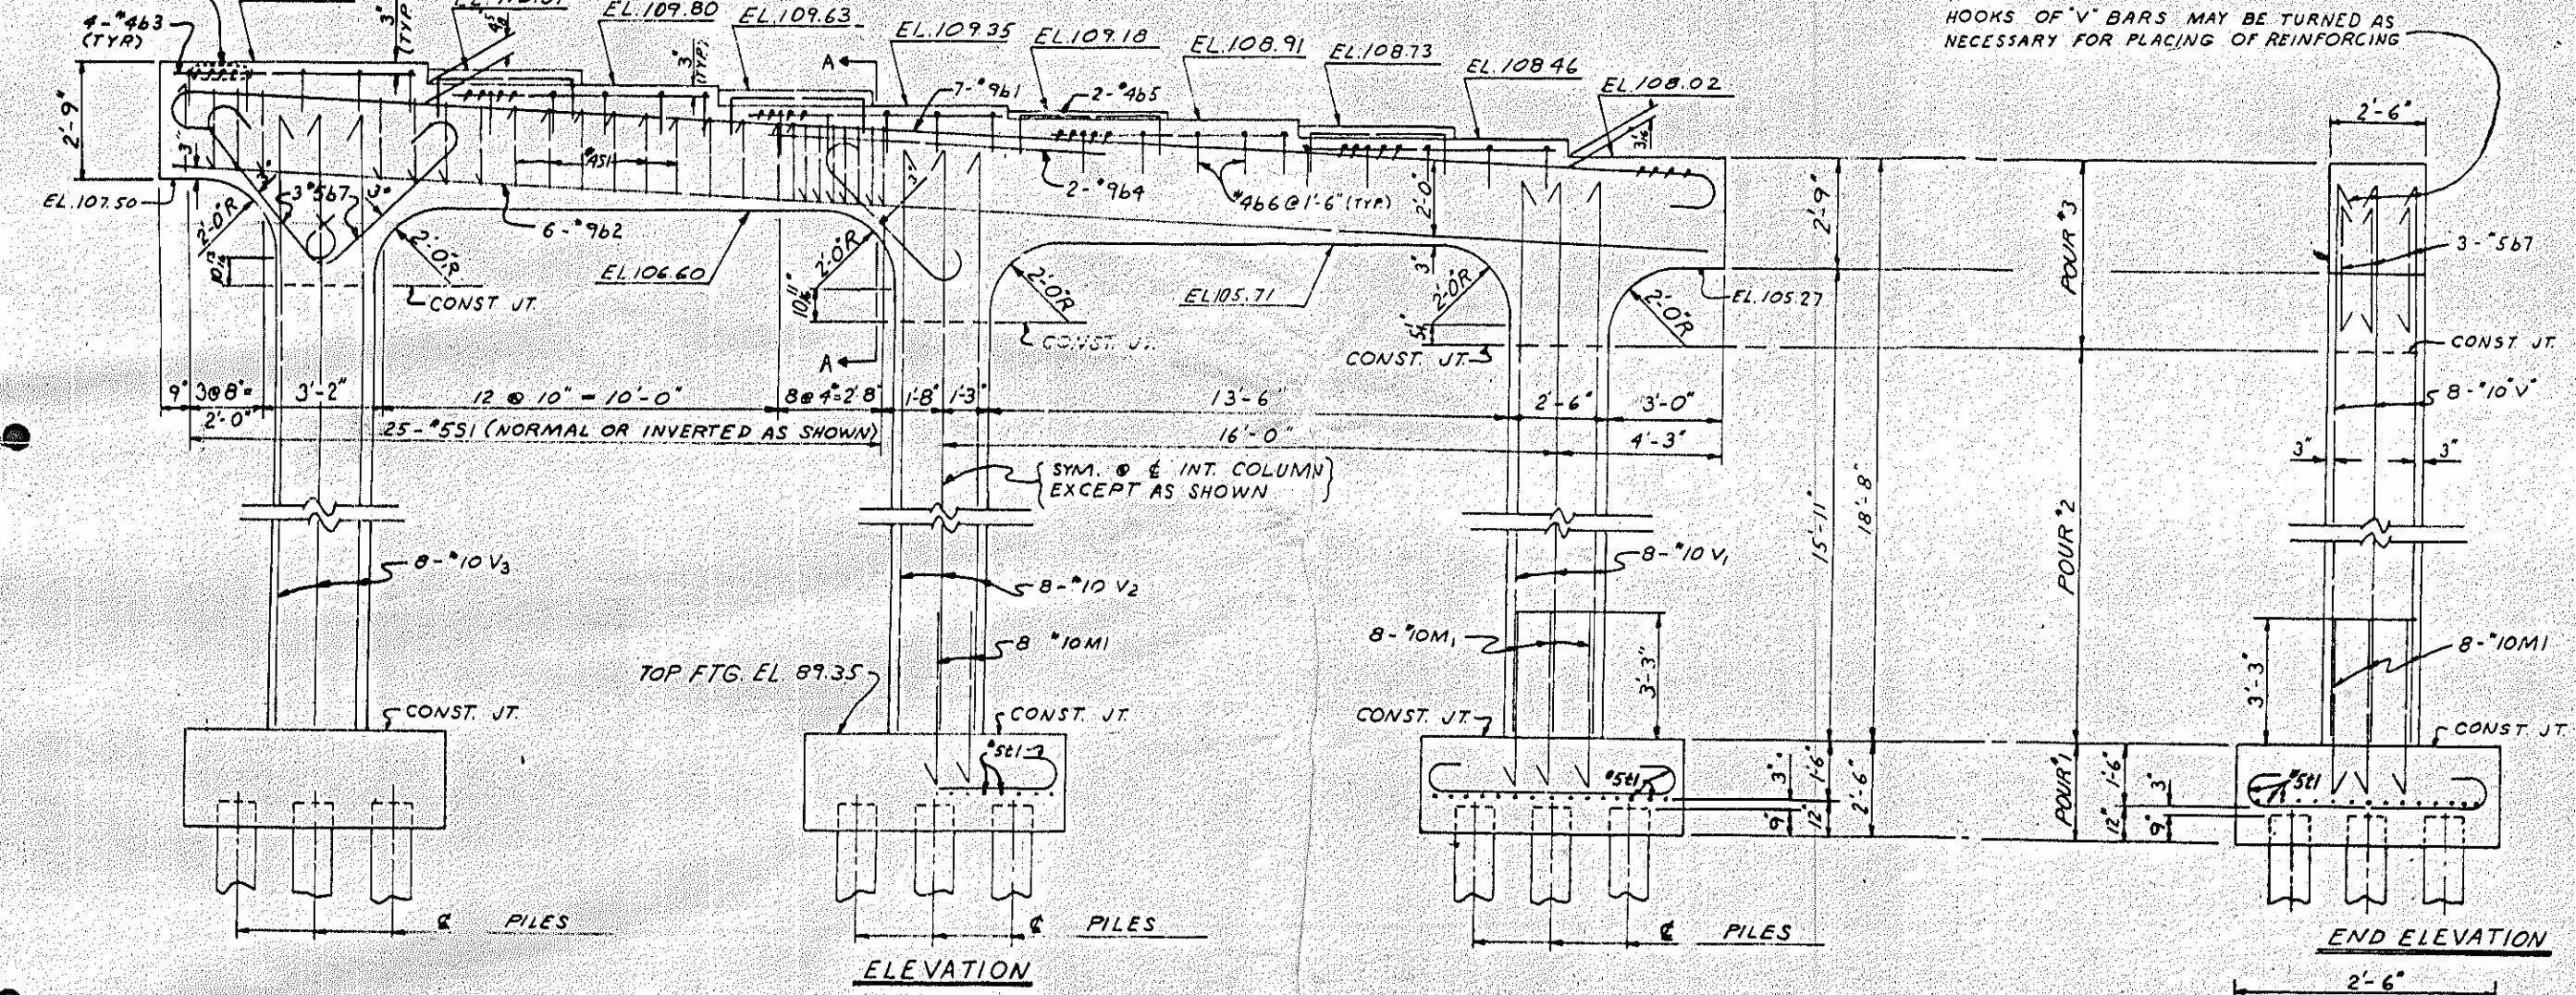 4-#4b3
(TYP)
3"
(TYP
EL.109.80
EL.109.63
EL.109.35
EL.109.18
EL.108.91
EL.108.73
EL.108.46
EL.108.02
HOOKS OF "V" BARS MAY BE TURNED AS
NECESSARY FOR PLACING OF REINFORCING
3"
(TYP)
A
7-#9b1
2-#4b5
2'-9"
2'-6"
3"
#4S1
2-#9b4
#4b6@1'-6"(TYP.)
2'-0"
2'-9"
POUR #3
3-#5b7
EL.107.50
2'-0"R
3"
3#5b7
3"
2'-0"R
6-#9b2
EL.106.60
2'-0"R
3"
2'-0"R
EL105.71
3"
2'-0"R
2'-0"R
EL.105.27
CONST JT.
CONST. JT.
CONST. JT.
CONST JT.
A
9"
3@8"=
2'-0"
3'-2"
12 @ 10" = 10'-0"
8@4"=2'8"
1'-8"
1'-3"
13'-6"
2'-6"
3'-0"
25-#5S1 (NORMAL OR INVERTED AS SHOWN)
16'-0"
4'-3"
8-#10"V"
3"
3"
SYM. @ ℄ INT. COLUMN
EXCEPT AS SHOWN
15'-11"
18'-8"
POUR #2
8-#10 V3
8-#10 V2
8-#10 V1
8 #10M1
8-#10M1
3'-3"
8-#10M1
3'-3"
TOP FTG. EL 89.35
CONST. JT.
CONST. JT.
CONST. JT.
CONST JT.
#5t1
#5t1
#5t1
3"
1'-6"
2'-6"
9"
12"
POUR #1
1'-6"
3"
12"
9"
℄ PILES
℄ PILES
℄ PILES
ELEVATION
END ELEVATION
2'-6"